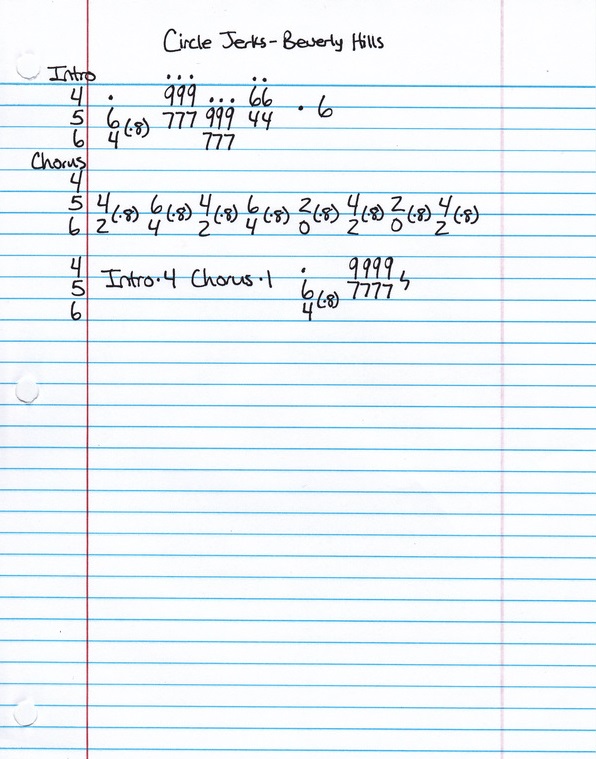 Circle Jerks - Beverly Hills
Intro
4 . 999 ... 66 . 6
5 6 (·8) 777 999 44
6 4 777
Chorus
4
5 4 (·8) 6 (·8) 4 (·8) 6 (·8) 2 (·8) 4 (·8) 2 (·8) 4 (·8)
6 2 4 2 4 0 2 0 2
4 . 9999
5 Intro·4 Chorus·1 6 (·8) 7777
6 4